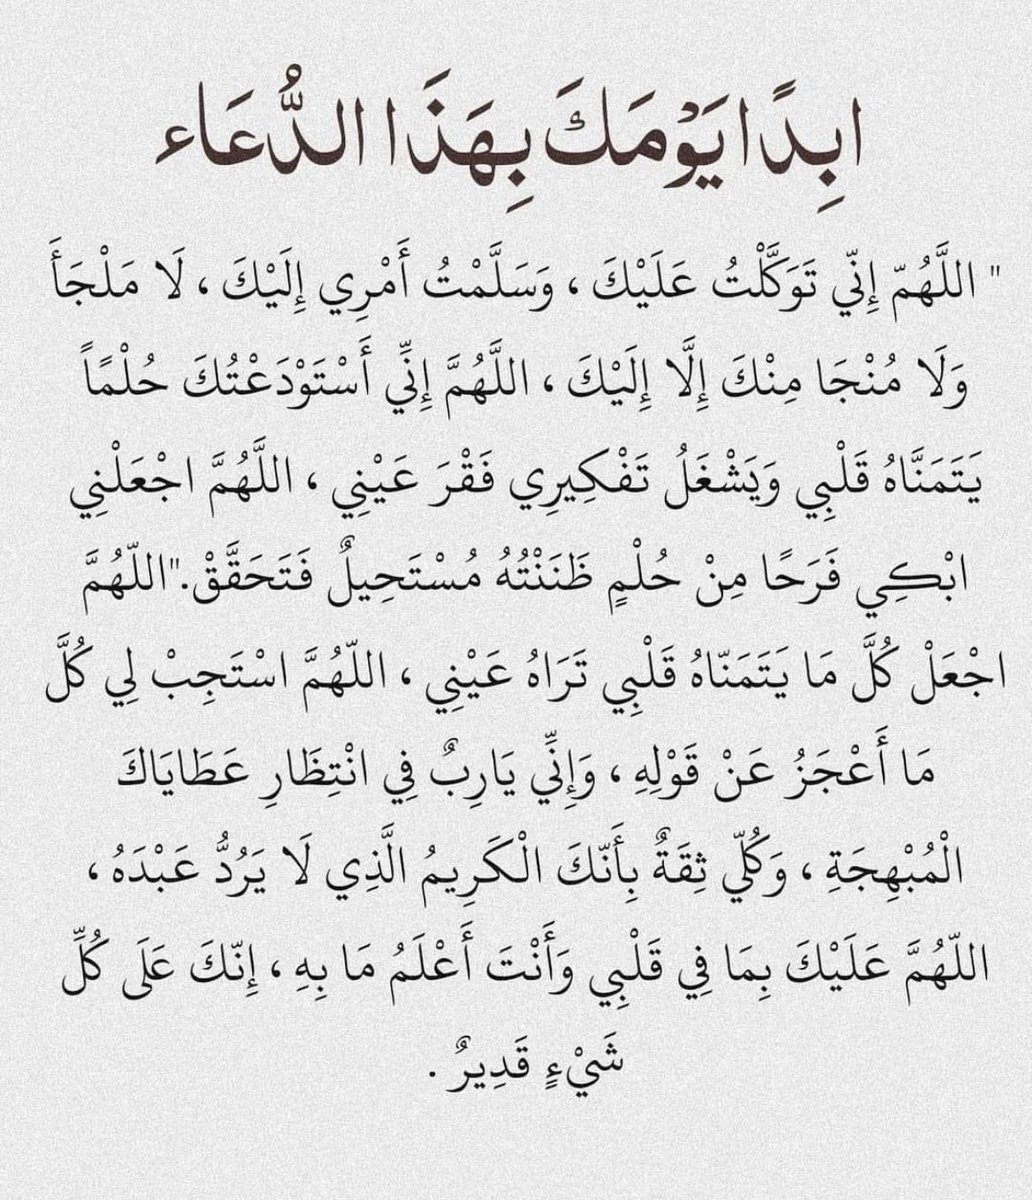 ابِدًا يَوْمَكَ بِهَذَا الدُّعَاء
" اللَّهُمّ إِنّي تَوَكَّلْتُ عَلَيْكَ ، وَسَلَّمْتُ أَمْرِي إِلَيْكَ ، لَا مَلْجَأَ
وَلَا مُنْجَا مِنْكَ إِلَّا إِلَيْكَ ، اللَّهُمَّ إِنِّي أَسْتَوْدَعْتُكَ حُلْمًاً
يَتَمَنَّاهُ قَلْبِي وَيَشْغَلُ تَفْكِيرِي فَقْرَ عَيْنِي ، اللَّهُمَّ اجْعَلْنِي
ابْكِي فَرَحًا مِنْ حُلْمٍ ظَنَنْتُهُ مُسْتَحِيلٌ فَتَحَقَّقْ."اللّهُمَّ
اجْعَلْ كُلَّ مَا يَتَمَنّاهُ قَلْبِي تَرَاهُ عَيْنِي ، اللّهُمَّ اسْتَجِبْ لِي كُلَّ
مَا أَعْجَزُ عَنْ قَوْلِهِ ، وَإِنِّي يَارِبٌ فِي انْتِظَارِ عَطَايَاكَ
الْمُبْهِجَةِ ، وَكُلّي ثِقَةٌ بِأَنّكَ الْكَرِيمُ الَّذِي لَا يَرُدُّ عَبْدَهُ ،
اللّهُمَّ عَلَيْكَ بِمَا فِي قَلْبِي وَأَنْتَ أَعْلَمُ مَا بِهِ ، إِنّكَ عَلَى كُلِّ
شَيْءٍ قَدِيرٌ .